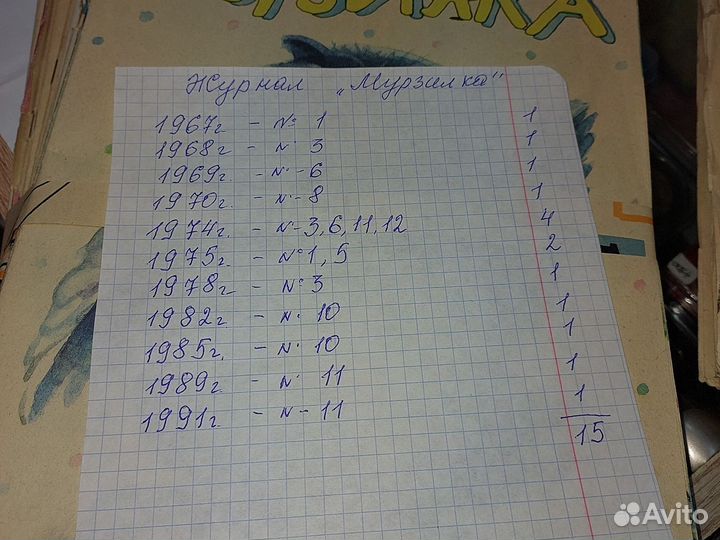 ЗИЛКА
Журнал „Мурзилка"
1967г - № 1 1
1968г - № 3 1
1969г. - № - 6 1
1970г. - № - 8 1
1974г. - № - 3, 6, 11, 12 4
1975г. - № 1, 5 2
1978г - № 3 1
1982г. - № 10 1
1985г. - № 10 1
1989г - № 11 1
1991г. - № - 11 1
15
Avito